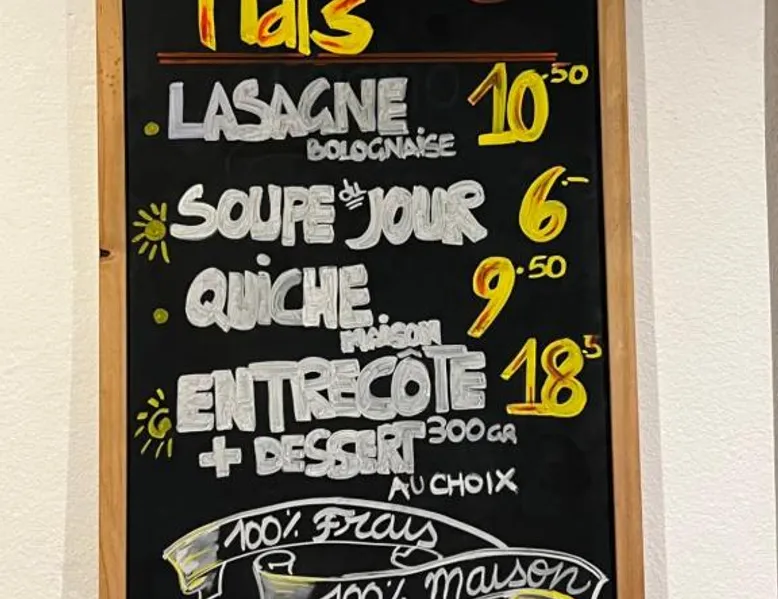 Plats
LASAGNE 10.50
BOLOGNAISE
SOUPE du JOUR 6.-
QUICHE 9.50
MAISON
ENTRECÔTE 18.5
+ DESSERT 300GR
AU CHOIX
100% Frais
100% Maison